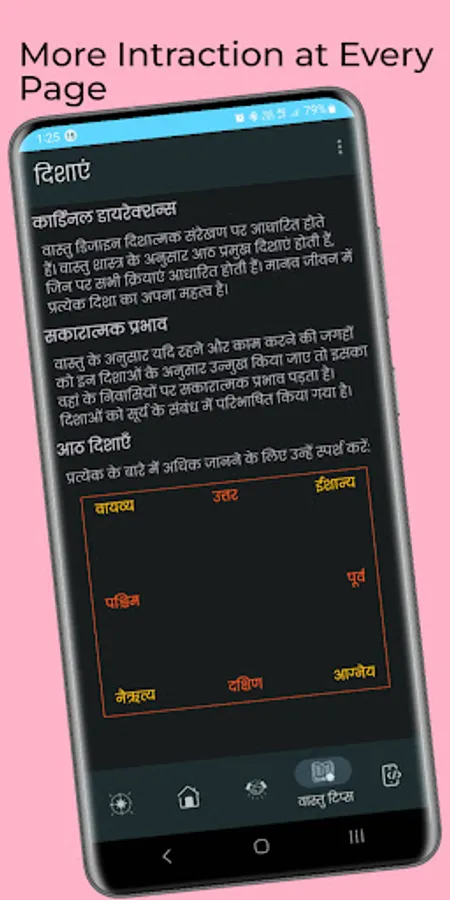 More Intraction at Every
Page
1:25
79%
दिशाएं
कार्डिनल डायरेक्शन्स
वास्तु डिजाइन दिशात्मक संरेखण पर आधारित होते
हैं। वास्तु शास्त्र के अनुसार आठ प्रमुख दिशाएं होती हैं,
जिन पर सभी क्रियाएं आधारित होती हैं। मानव जीवन में
प्रत्येक दिशा का अपना महत्व है।
सकारात्मक प्रभाव
वास्तु के अनुसार यदि रहने और काम करने की जगहों
को इन दिशाओं के अनुसार उन्मुख किया जाए तो इसका
वहां के निवासियों पर सकारात्मक प्रभाव पड़ता है।
दिशाओं को सूर्य के संबंध में परिभाषित किया गया है।
आठ दिशाएँ
प्रत्येक के बारे में अधिक जानने के लिए उन्हें स्पर्श करें:
वायव्य उत्तर ईशान्य
पश्चिम पूर्व
नैऋत्य दक्षिण आग्नेय
वास्तु टिप्स